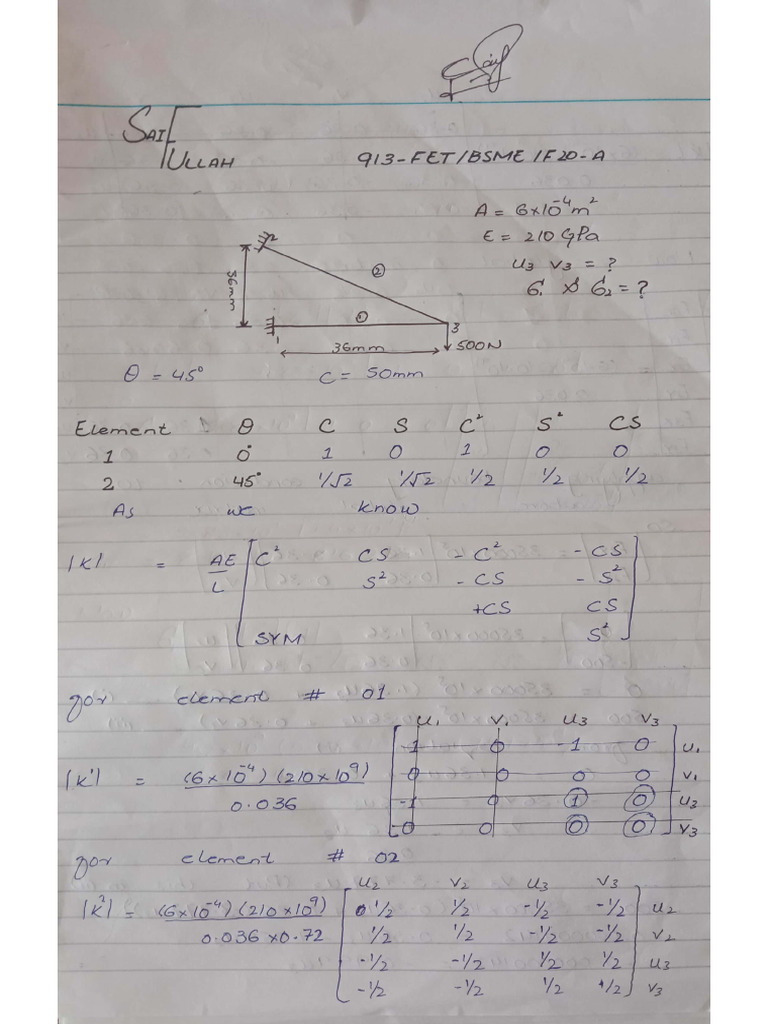 SAIF
ULLAH
913-FET/BSME/F20-A
A = 6x10⁻⁴m²
E = 210 GPa
u₃ v₃ = ?
σ₁ & σ₂ = ?
2
②
36mm
①
1
3
36mm
500N
θ = 45°
C = 50mm
Element : θ C S C² S² CS
1 0° 1 0 1 0 0
2 45° 1/√2 1/√2 1/2 1/2 1/2
As we know
|K| = AE/L [C² CS -C² -CS
S² -CS -S²
+CS CS
SYM S²]
for element # 01
u₁ v₁ u₃ v₃
|K¹| = (6x10⁻⁴)(210x10⁹)/0.036
[1 0 -1 0] u₁
0 0 0 0 v₁
-1 0 1 0 u₃
0 0 0 0 v₃
for element # 02
u₂ v₂ u₃ v₃
|K²| = (6x10⁻⁴)(210x10⁹)/0.036x0.72
[1/2 1/2 -1/2 -1/2] u₂
1/2 1/2 -1/2 -1/2 v₂
-1/2 -1/2 1/2 1/2 u₃
-1/2 -1/2 1/2 1/2 v₃